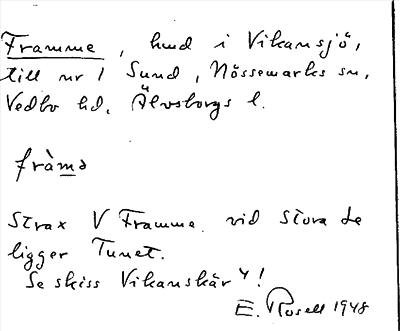 Framme, hmd i Vikansjö,
till nr 1 Sund, Nössemarks sn,
Vedbo hd, Älvsborgs l.
fràmə
Strax V Framme vid Stora Le
ligger Tunet.
Se skiss Vikanskär 4!
E. Rosell 1948